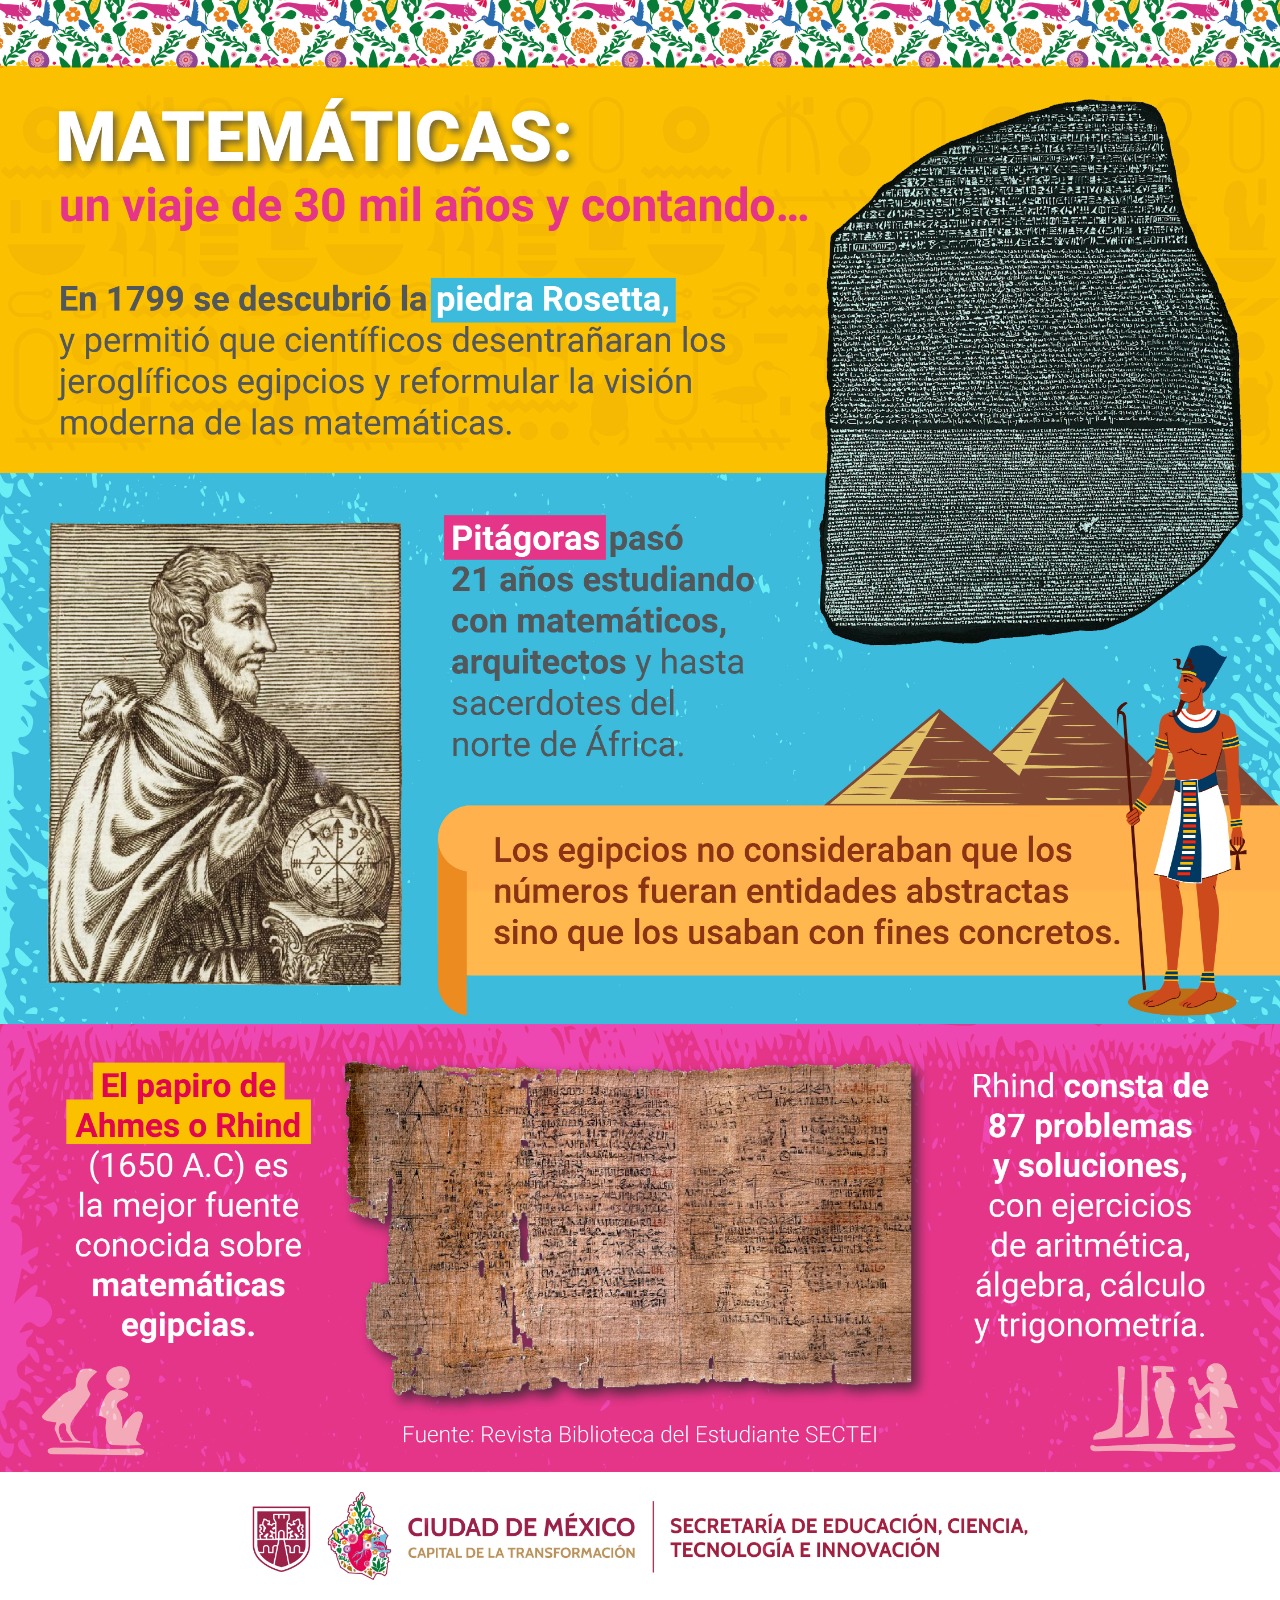 MATEMÁTICAS:
un viaje de 30 mil años y contando...
En 1799 se descubrió la piedra Rosetta,
y permitió que científicos desentrañaran los
jeroglíficos egipcios y reformular la visión
moderna de las matemáticas.
Pitágoras pasó
21 años estudiando
con matemáticos,
arquitectos y hasta
sacerdotes del
norte de África.
Los egipcios no consideraban que los
números fueran entidades abstractas
sino que los usaban con fines concretos.
El papiro de
Ahmes o Rhind
(1650 A.C) es
la mejor fuente
conocida sobre
matemáticas
egipcias.
Rhind consta de
87 problemas
y soluciones,
con ejercicios
de aritmética,
álgebra, cálculo
y trigonometría.
Fuente: Revista Biblioteca del Estudiante SECTEI
CIUDAD DE MÉXICO
CAPITAL DE LA TRANSFORMACIÓN
SECRETARÍA DE EDUCACIÓN, CIENCIA,
TECNOLOGÍA E INNOVACIÓN